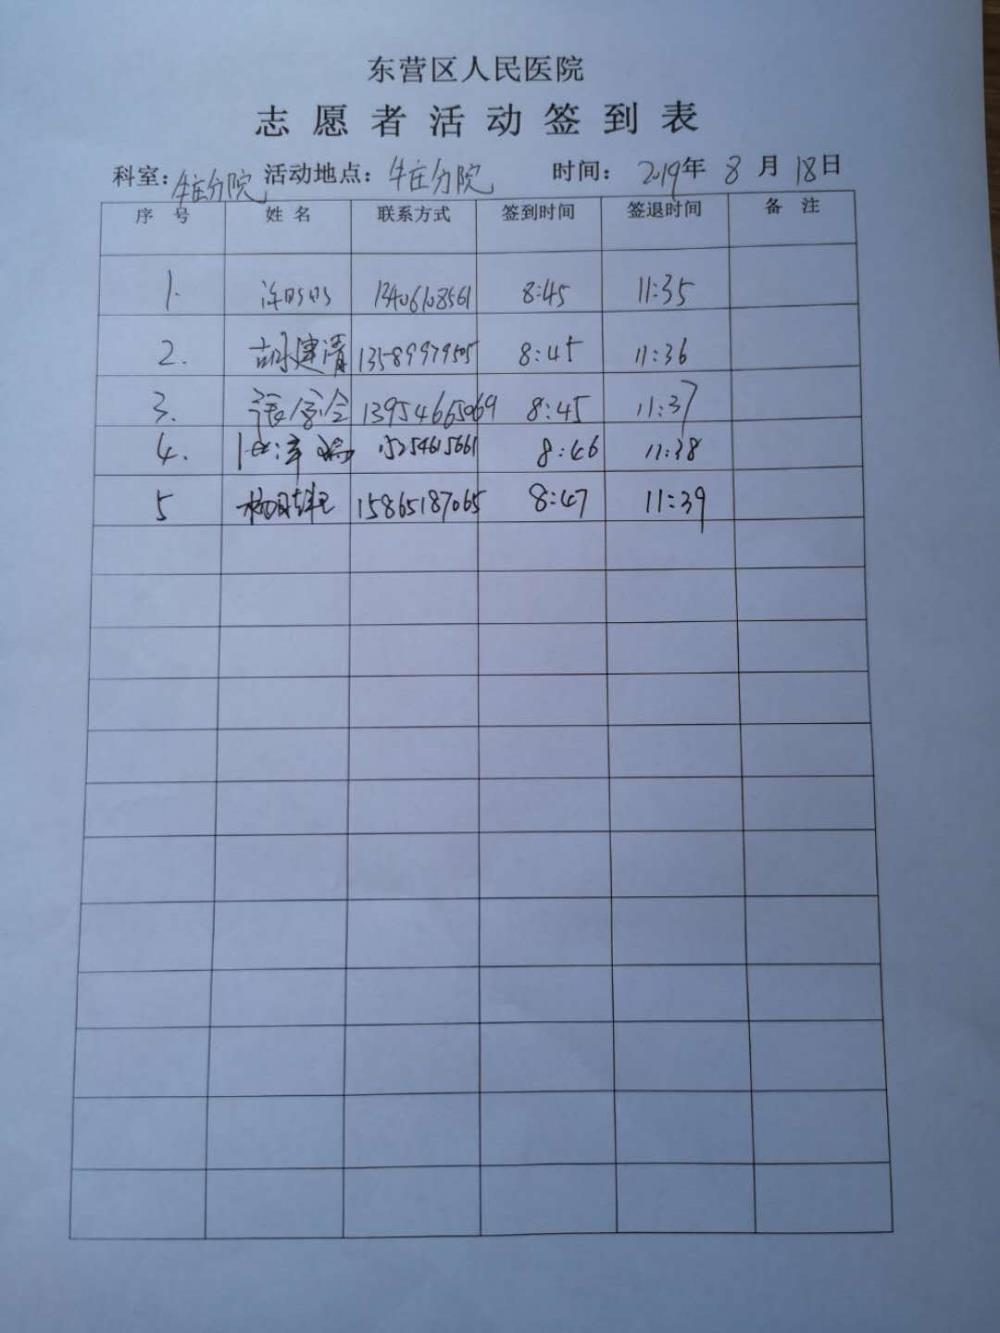 东营区人民医院
志愿者活动签到表
科室：牛庄分院 活动地点：牛庄分院 时间：2019年8月18日
序 号 姓 名 联系方式 签到时间 签退时间 备 注
1. 8:45 11:35
2. 胡建清 13589979505 8:45 11:36
3. 13954665069 8:45 11:37
4. 15254615661 8:46 11:38
5 15865187065 8:47 11:39